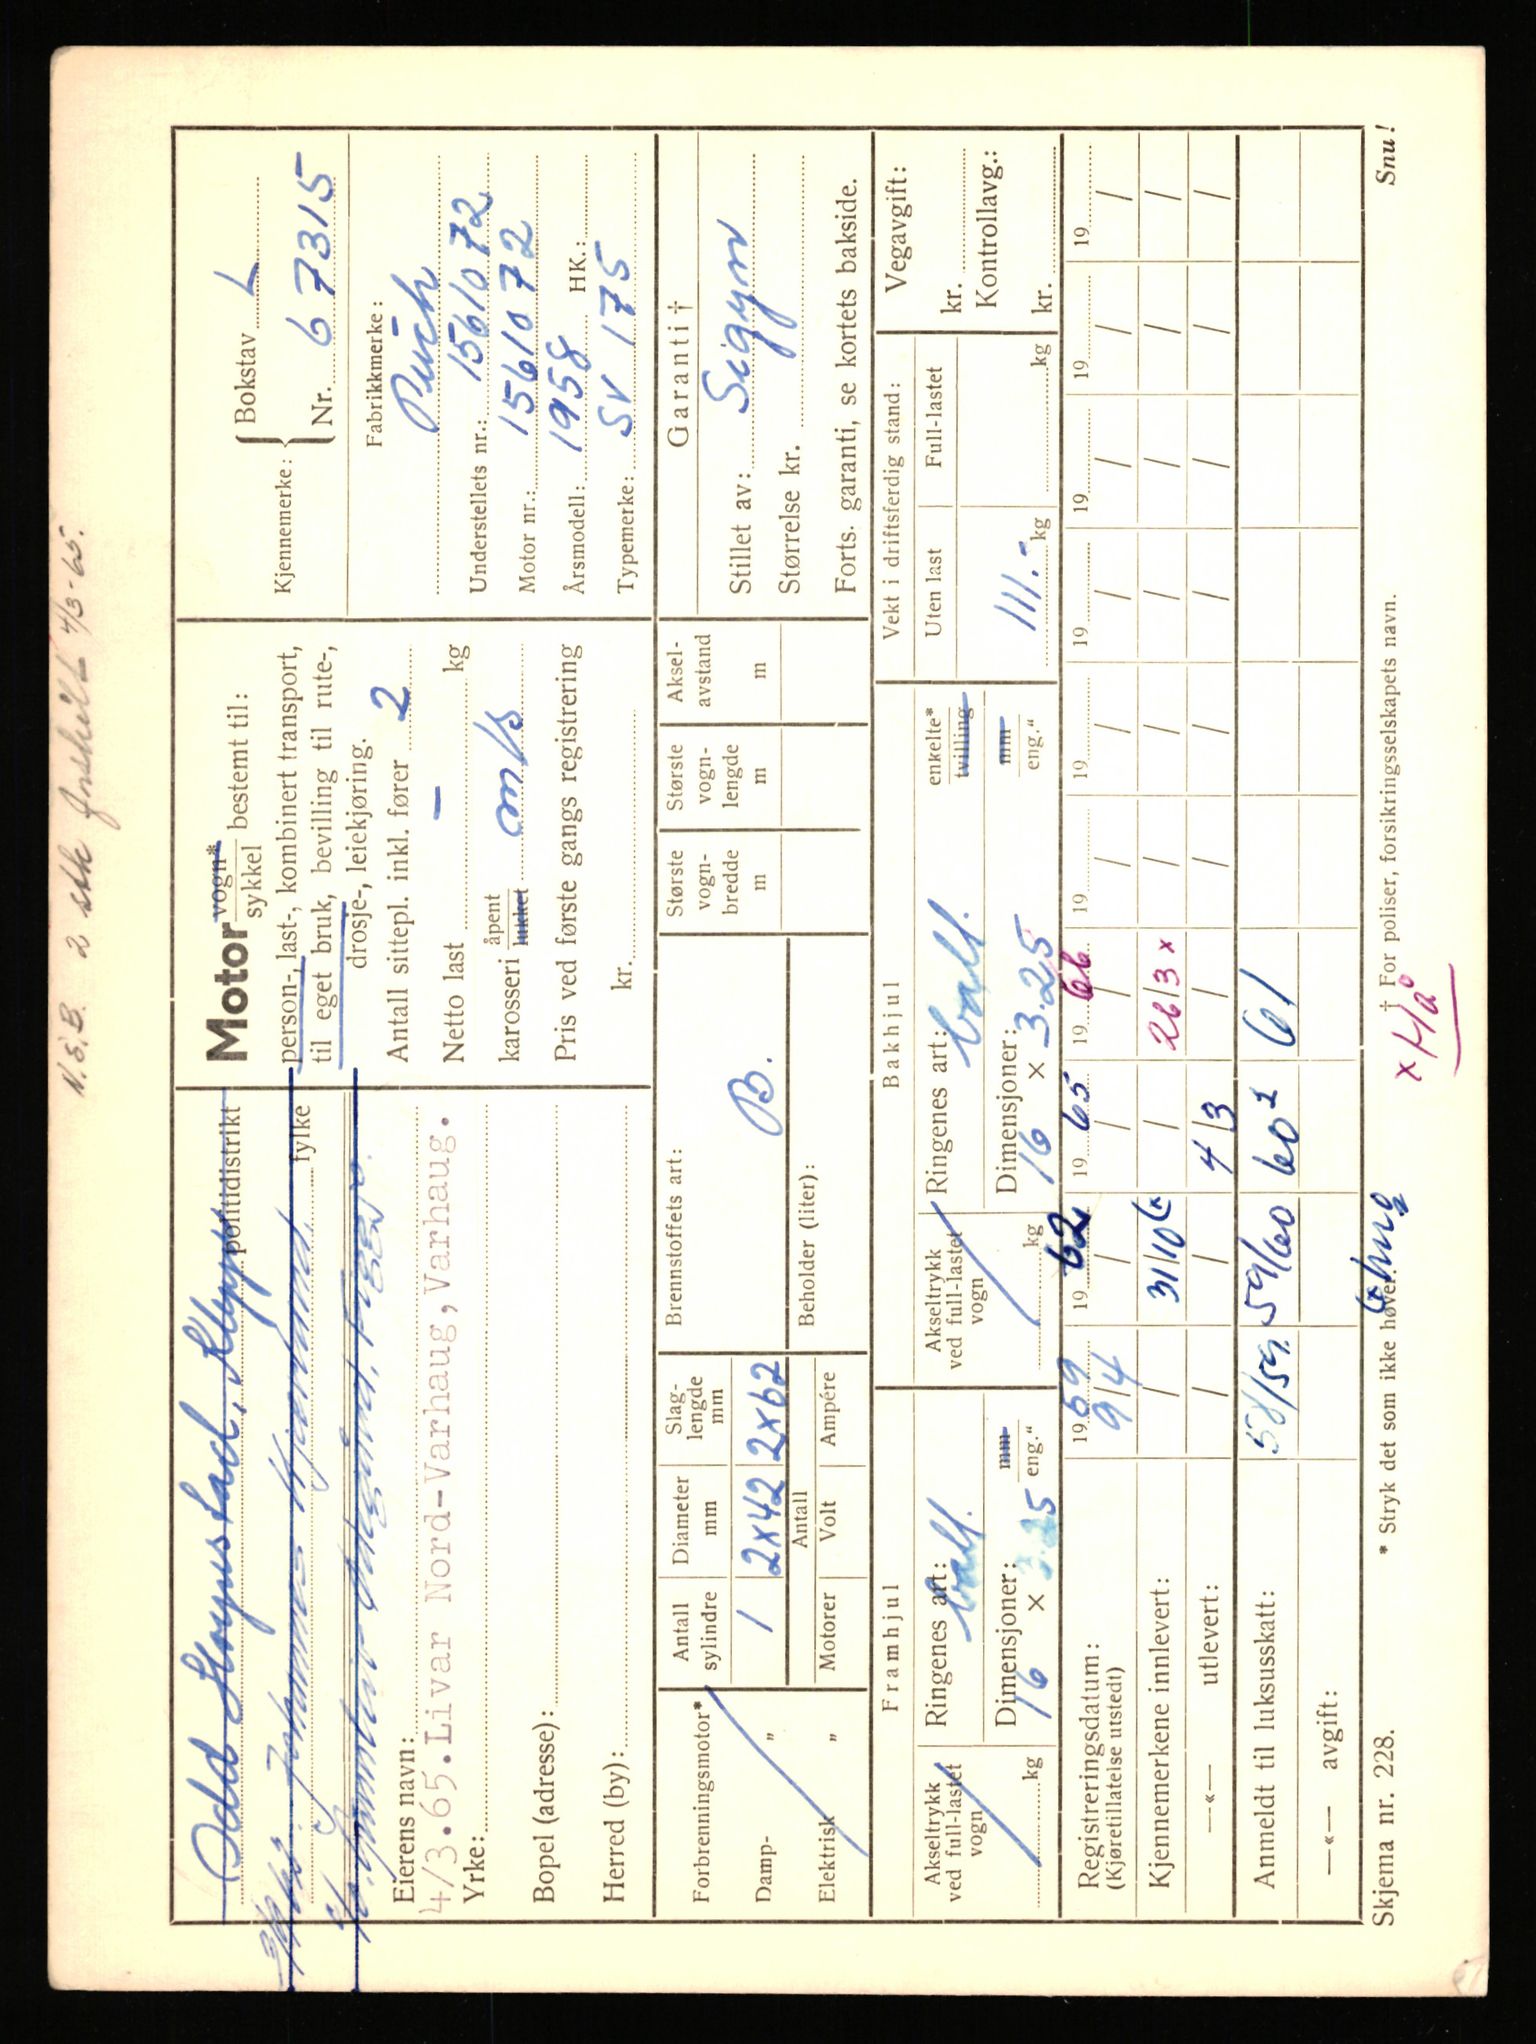 N.B. 2 stk innkilt 4/3-65.
Odd Haugstad, Klepp
politidistrikt
fylke
Eierens navn:
4/3.65.Livar Nord-Varhaug, Varhaug.
Yrke:
Bopel (adresse):
Herred (by):
Motor vogn* sykkel bestemt til:
person-, last-, kombinert transport,
til eget bruk, bevilling til rute-,
drosje-, leiekjøring.
Antall sittepl. inkl. fører 2
Netto last — kg
karosseri åpent lukket m/s
Pris ved første gangs registrering
kr.
Kjennemerke: { Bokstav L
Nr. 67315
Fabrikkmerke:
Puch
Understellets nr.: 1561072
Motor nr.: 1561072
Årsmodell: 1958 HK.:
Typemerke: SV 175
Forbrenningsmotor*
Damp- "
Elektrisk "
Antall sylindre
Diameter mm
Slaglengde mm
1 2x42 2x62
Motorer Antall Volt Ampére
Brennstoffets art:
B.
Beholder (liter):
Største vogn-bredde m
Største vogn-lengde m
Aksel-avstand m
Garanti †
Stillet av: Sigyn
Størrelse kr.
Forts. garanti, se kortets bakside.
Framhjul
Akseltrykk ved full-lastet vogn
kg
Ringenes art: ball.
Dimensjoner: mm eng."
16 x 3.25
Bakhjul
Akseltrykk ved full-lastet vogn
kg
Ringenes art: ball.
enkelte* tvilling
Dimensjoner: mm eng."
16 x 3.25
Vekt i driftsferdig stand:
Uten last Full-lastet
111.- kg kg
Vegavgift:
kr.
Kontrollavg.:
kr.
Registreringsdatum: 1959 1962 1965 1966 19 19 19 19 19 19
(Kjøretillatelse utstedt) 9/4 / / / / / / / / /
Kjennemerkene innlevert: / 31/10 / 26/3 x / / / / / /
—«— utlevert: / / 4/3 / / / / / / /
Anmeldt til luksusskatt: 58/59. 59/60 60 61
—«— avgift:
Skjema nr. 228.
* Stryk det som ikke høver.
† For poliser, forsikringsselskapets navn.
Snu!
x Hå